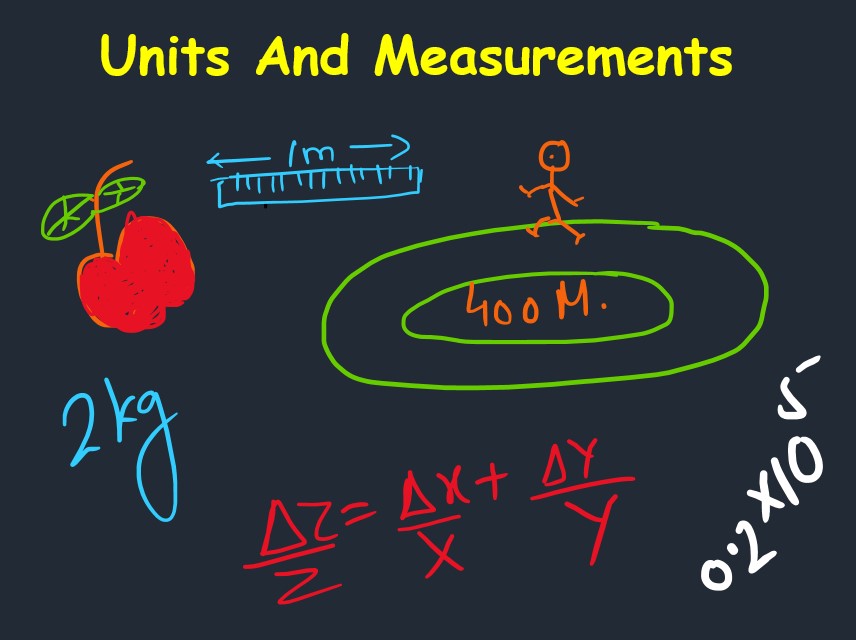 Units And Measurements
1m
400 M.
2kg
ΔZ/Z = ΔX/X + ΔY/Y
0.2 X10⁵